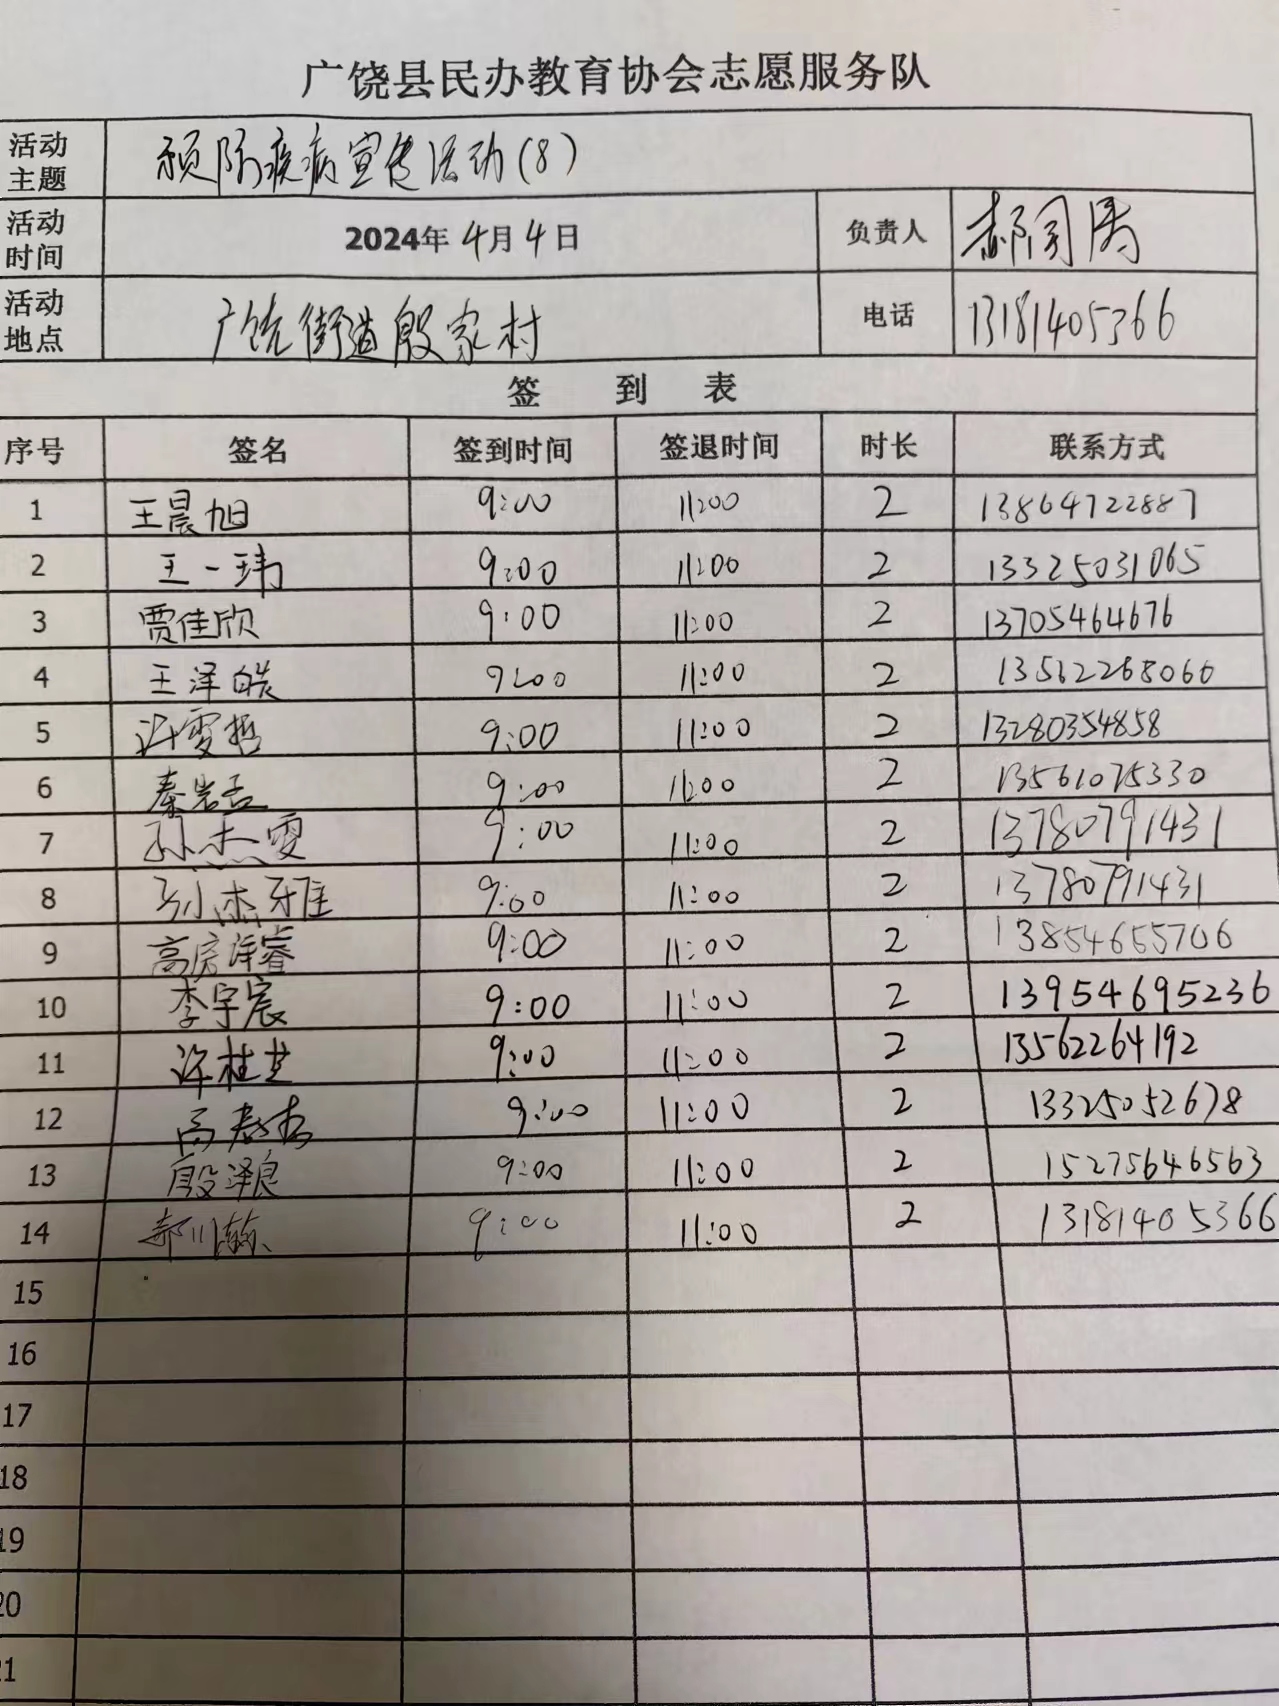 广饶县民办教育协会志愿服务队
活动主题 预防疾病宣传活动(8)
活动时间 2024年4月4日 负责人
活动地点 广饶街道殷家村 电话 13181405366
签 到 表
序号 签名 签到时间 签退时间 时长 联系方式
1 王晨旭 9:00 11:00 2 13864722887
2 王一玮 9:00 11:00 2 13325031065
3 贾佳欣 9:00 11:00 2 13705464676
4 王泽皓 9:00 11:00 2 13562268066
5 许雯哲 9:00 11:00 2 13280354858
6 秦 9:00 11:00 2 13561075330
7 孙杰雯 9:00 11:00 2 13780791431
8 孙杰雅 9:00 11:00 2 13780791431
9 高房泽睿 9:00 11:00 2 13854655706
10 李宇宸 9:00 11:00 2 13954695236
11 许桂芝 9:00 11:00 2 13562264192
12 高 9:00 11:00 2 13325052678
13 殷泽良 9:00 11:00 2 15275646563
14 郝 9:00 11:00 2 13181405366
15
16
17
18
19
20
21